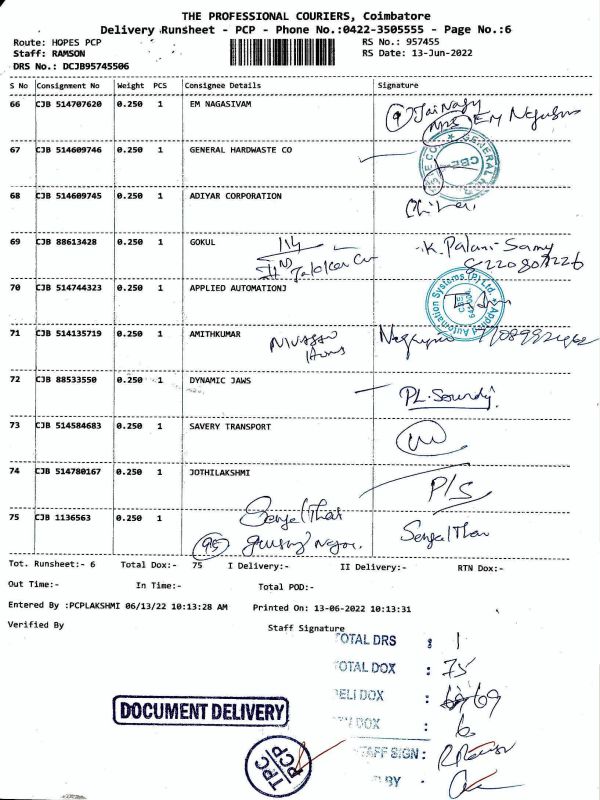 THE PROFESSIONAL COURIERS, Coimbatore
Delivery Runsheet - PCP - Phone No.:0422-3505555 - Page No.:6
Route: HOPES PCP RS No.: 957455
Staff: RAMSON RS Date: 13-Jun-2022
DRS No.: DCJB95745506
S No Consignment No Weight PCS Consignee Details Signature
66 CJB 514707620 0.250 1 EM NAGASIVAM
67 CJB 514609746 0.250 1 GENERAL HARDWASTE CO
68 CJB 514609745 0.250 1 ADIYAR CORPORATION
69 CJB 88613428 0.250 1 GOKUL K. Palani Samy
70 CJB 514744323 0.250 1 APPLIED AUTOMATIONJ
71 CJB 514135719 0.250 1 AMITHKUMAR
72 CJB 88533550 0.250 1 DYNAMIC JAWS
73 CJB 514584683 0.250 1 SAVERY TRANSPORT
74 CJB 514780167 0.250 1 JOTHILAKSHMI P/S
75 CJB 1136563 0.250 1
Tot. Runsheet:- 6 Total Dox:- 75 I Delivery:- II Delivery:- RTN Dox:-
Out Time:- In Time:- Total POD:-
Entered By :PCPLAKSHMI 06/13/22 10:13:28 AM Printed On: 13-06-2022 10:13:31
Verified By Staff Signature
TOTAL DRS : 1
TOTAL DOX : 75
DELI DOX : 69
DOX : 6
STAFF SIGN :
BY
DOCUMENT DELIVERY
TPC
PCP